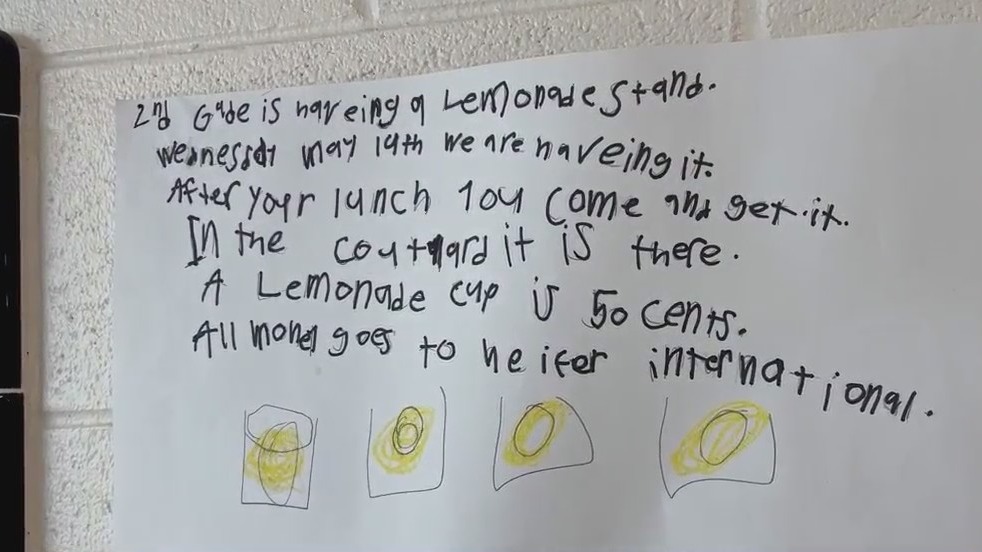 2nd Gade is haveing a Lemonade Stand.
wednessday may 14th we are haveing it.
After your lunch you come and get it.
In the coutyard it is there.
A Lemonade cup is 50 cents.
All money goes to heifer international.